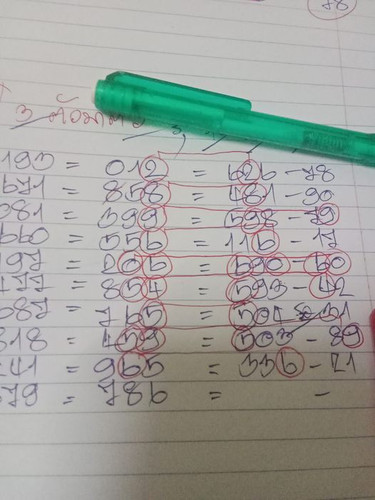 78
3 ตัว
193 = 012 = 626 - 78
671 = 858 = 481 - 90
081 = 399 = 598 - 79
660 = 556 = 116 - 17
197 = 206 = 590 - 60
477 = 854 = 593 - 42
087 = 765 = 504 - 51
818 = 459 = 503 - 89
241 = 965 = 336 - 21
579 = 786 = -